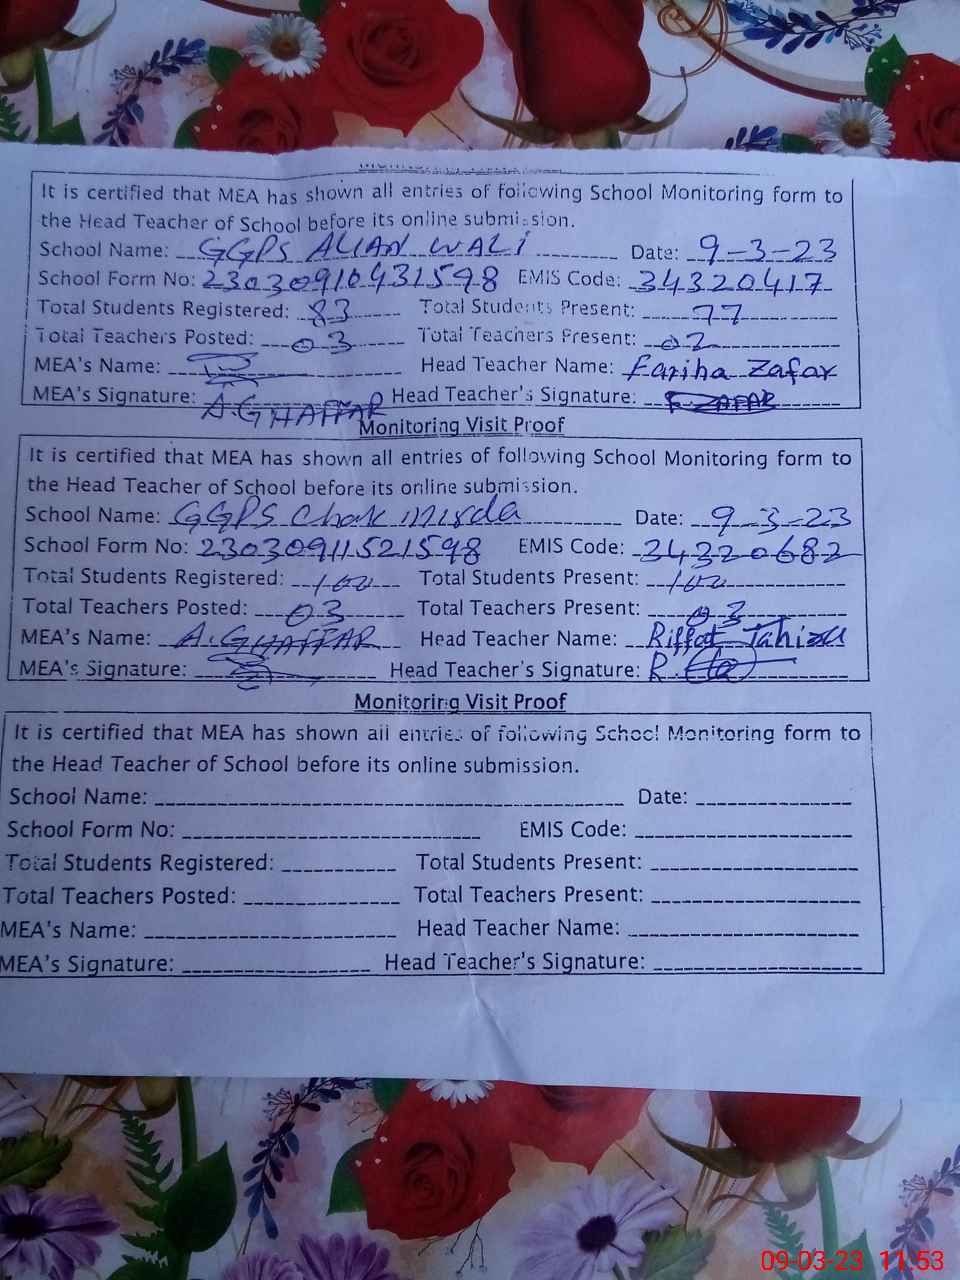 It is certified that MEA has shown all entries of following School Monitoring form to
the Head Teacher of School before its online submission.
School Name: GGPS ALIAN WALI Date: 9-3-23
School Form No: 23030910431598 EMIS Code: 34320417
Total Students Registered: 83 Total Students Present: 77
Total Teachers Posted: 03 Total Teachers Present: 02
MEA's Name: Head Teacher Name: Fariha Zafar
MEA's Signature: A.GHAFFAR Head Teacher's Signature: F.ZAFAR
Monitoring Visit Proof
It is certified that MEA has shown all entries of following School Monitoring form to
the Head Teacher of School before its online submission.
School Name: GGPS Chak Mirda Date: 9-3-23
School Form No: 23030911521598 EMIS Code: 34320682
Total Students Registered: 100 Total Students Present: 100
Total Teachers Posted: 03 Total Teachers Present: 03
MEA's Name: A.GHAFFAR Head Teacher Name: Riffat
MEA's Signature: Head Teacher's Signature: R.
Monitoring Visit Proof
It is certified that MEA has shown all entries of following School Monitoring form to
the Head Teacher of School before its online submission.
School Name: Date:
School Form No: EMIS Code:
Total Students Registered: Total Students Present:
Total Teachers Posted: Total Teachers Present:
MEA's Name: Head Teacher Name:
MEA's Signature: Head Teacher's Signature:
09-03-23 11:53